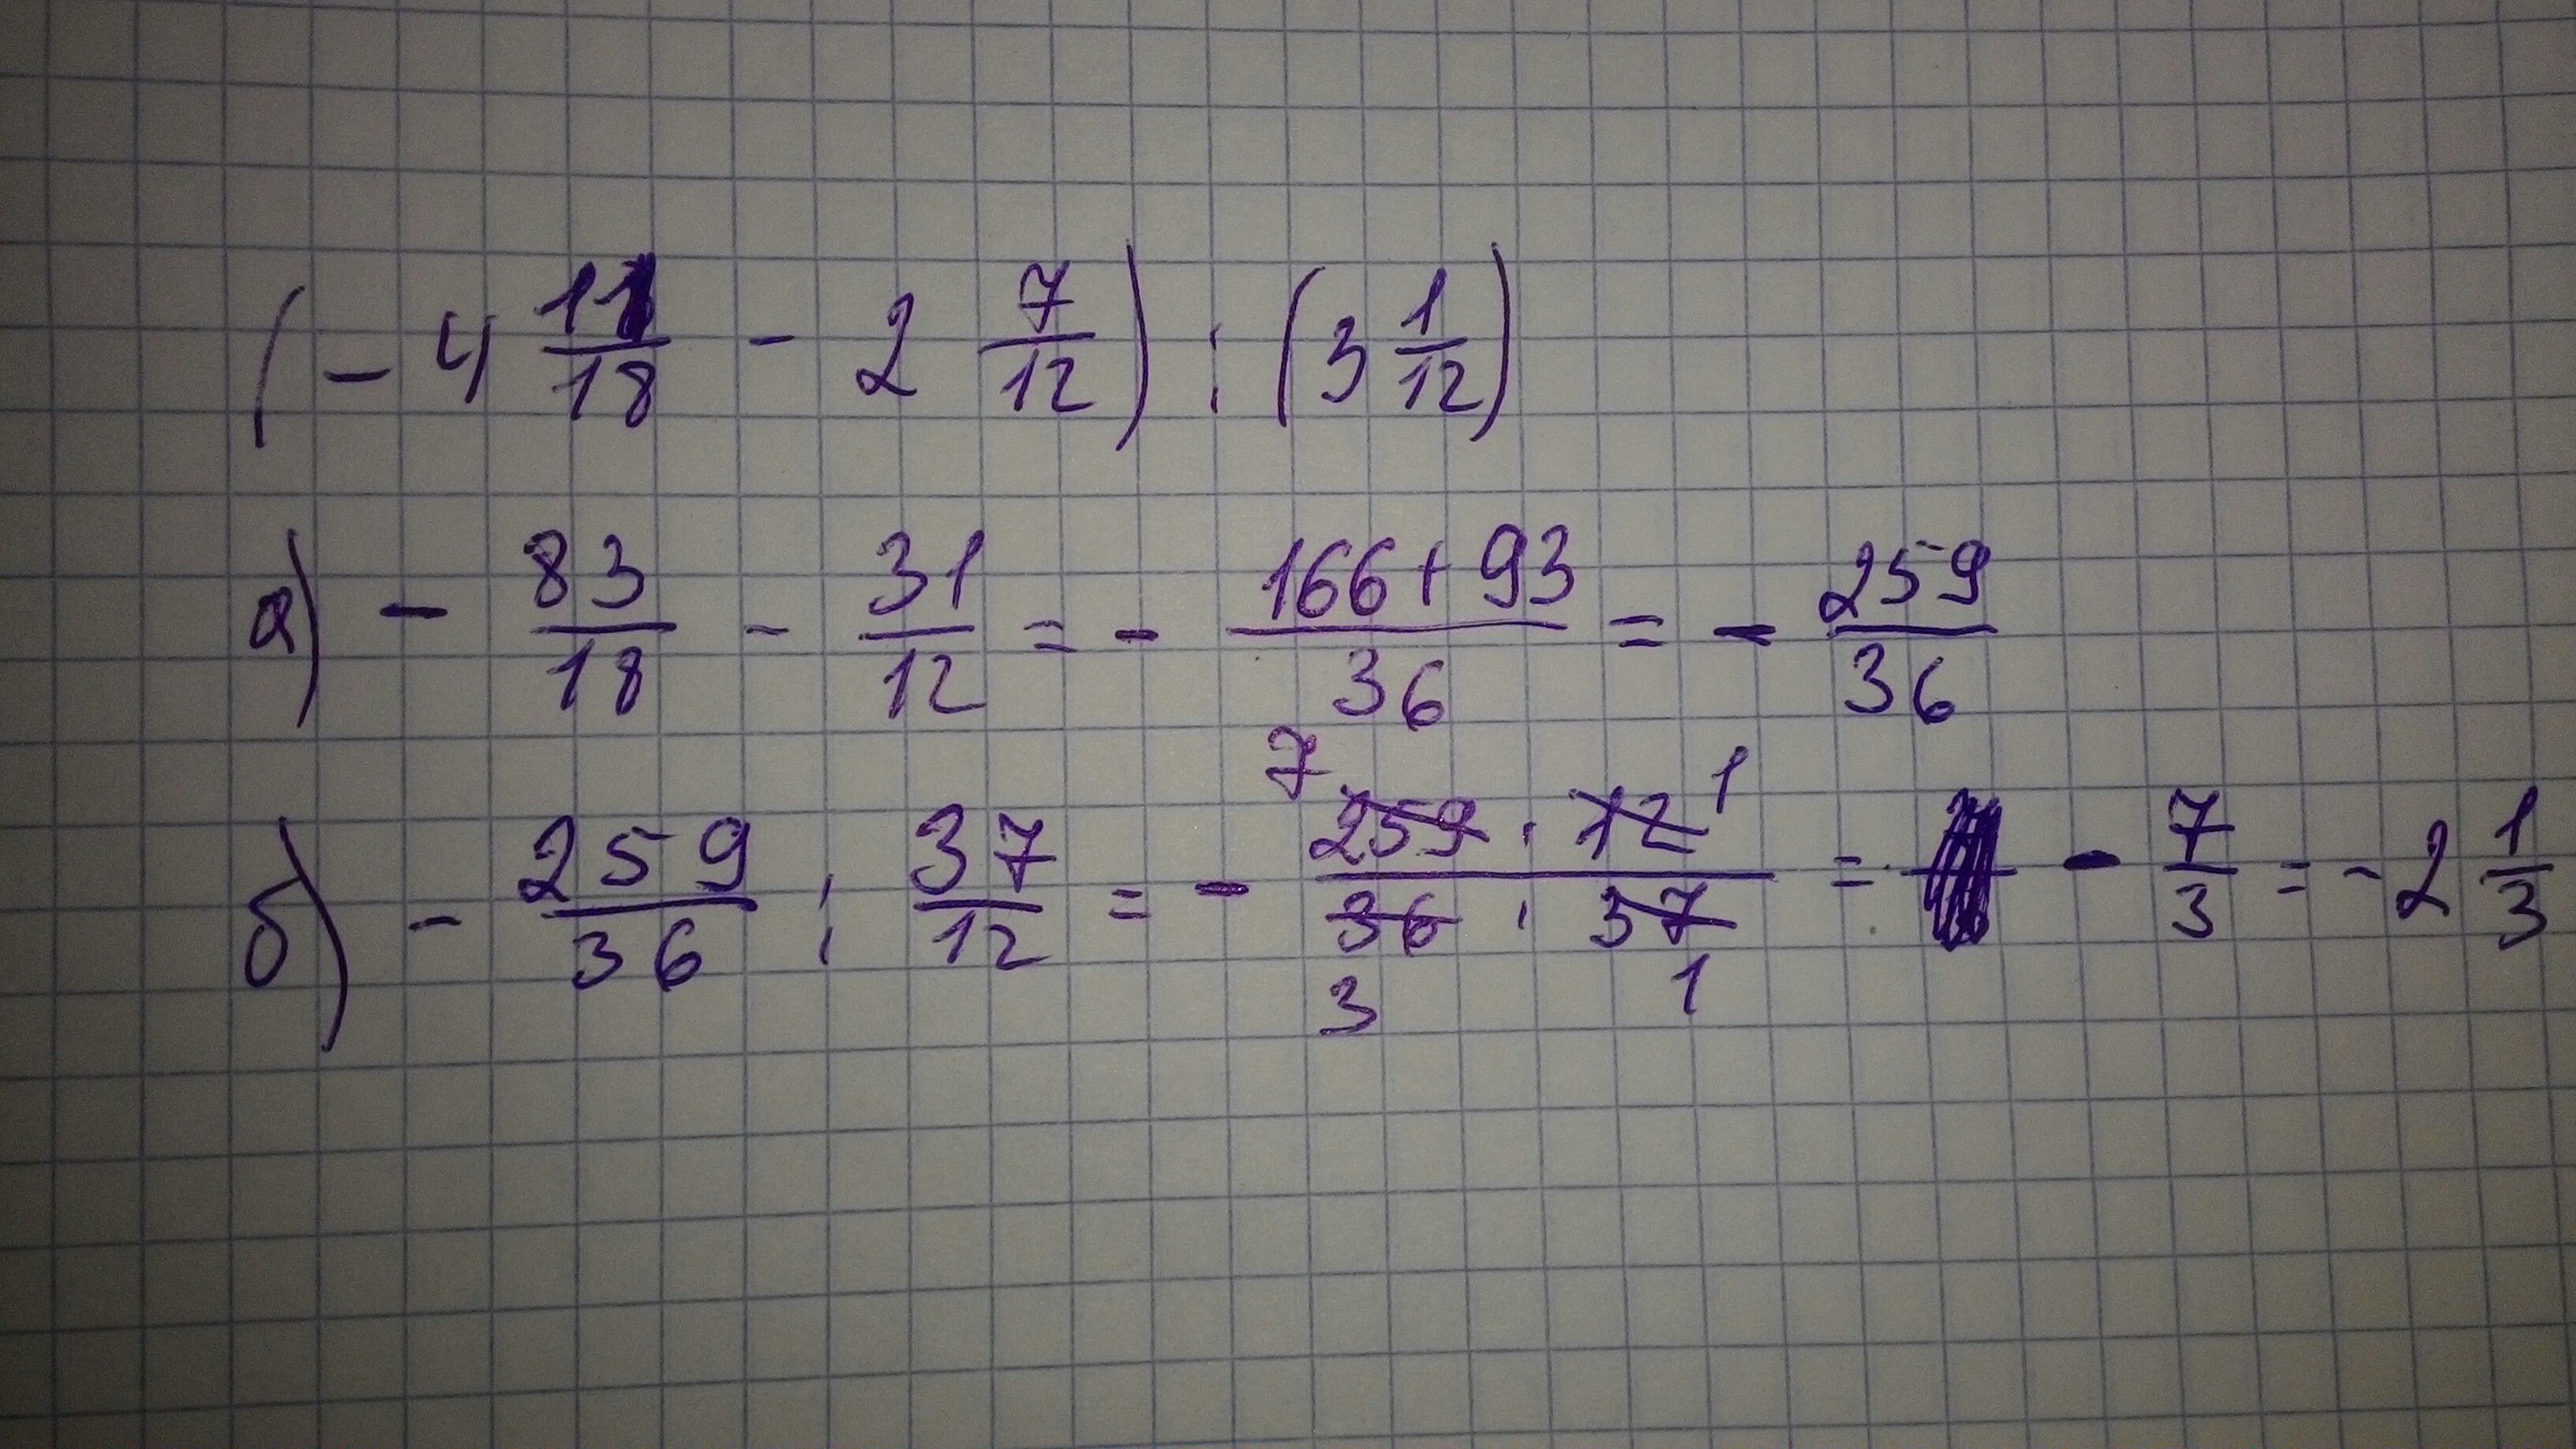 (- 4 11/18 - 2 7/12) : (3 1/12)
а) - 83/18 - 31/12 = - (166 + 93)/36 = - 259/36
б) - 259/36 : 37/12 = - (259 7 · 12 1)/(36 3 · 37 1) = - 7/3 = - 2 1/3